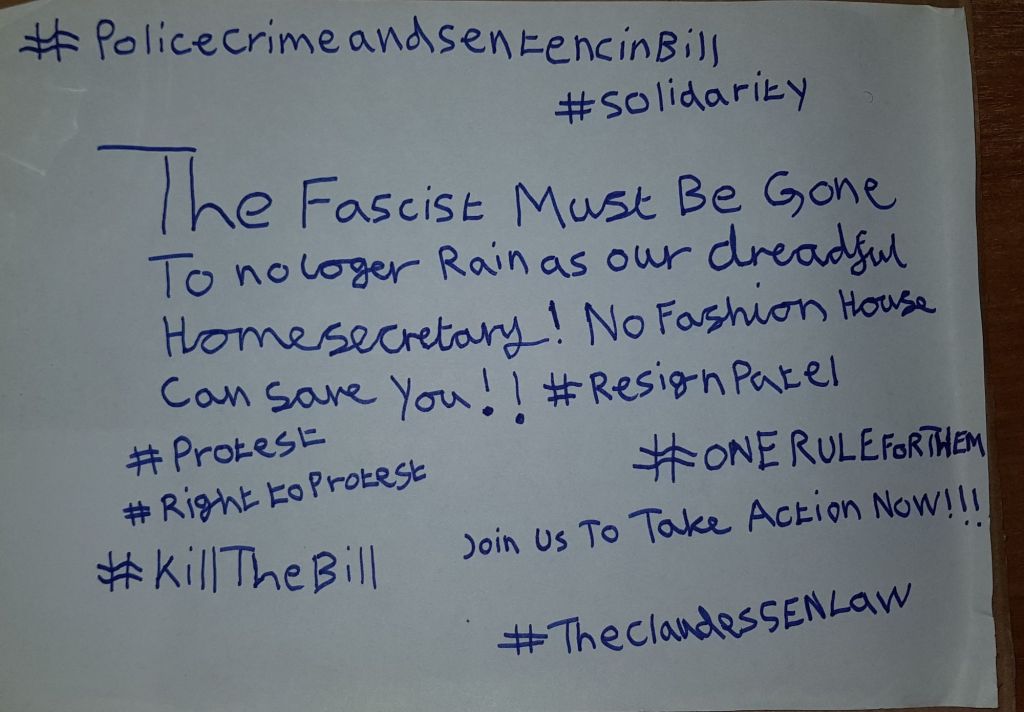 #PolicecrimeandsentencinBill
#solidarity
The Fascist Must Be Gone
To no loger Rain as our dreadful
Homesecretary! No Fashion House
Can save You!! #ResignPatel
#Protest
#RighttoProtest
#ONERULEFORTHEM
Join Us To Take Action Now!!!
#KillTheBill
#TheClandesSENLAW